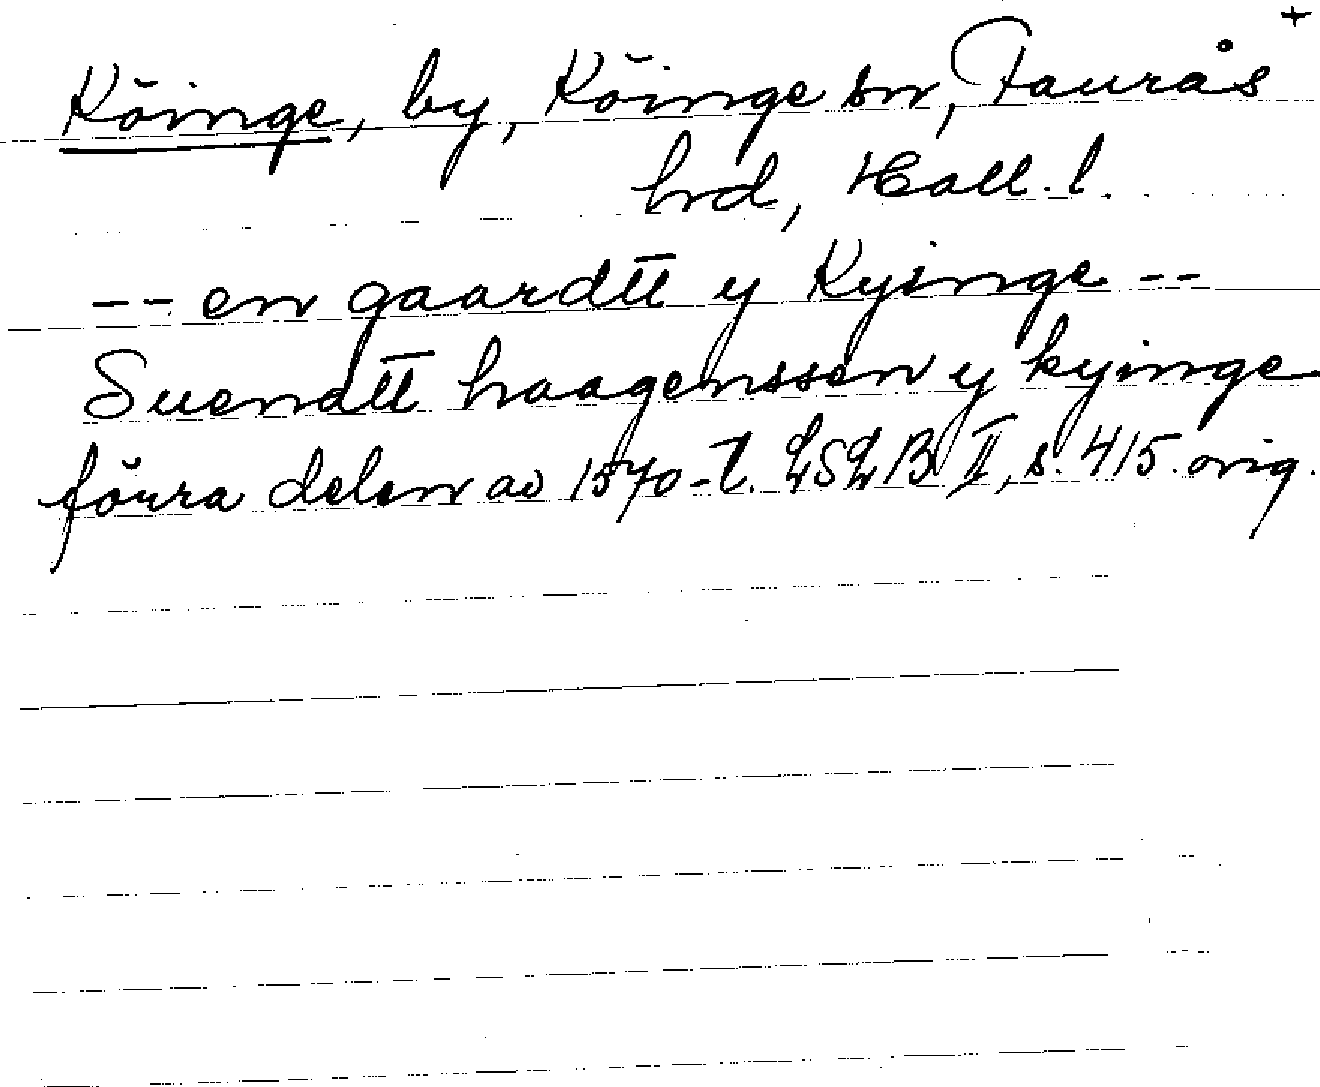 +
Köinge, by, Köinge sn, Faurås
hrd, Hall. l.
-- en gaardtt y Kyinge --
Suendtt haagenssen y kyinge
förra delen av 1570-t. LSLB II, s. 415. orig.